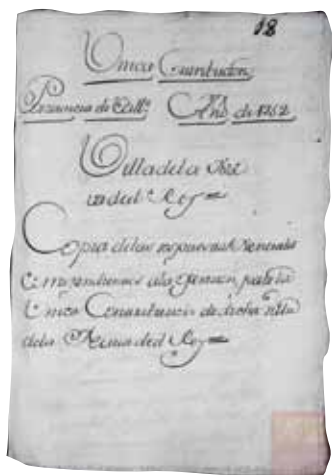 18
Unica Contribucion
Provincia de Cast.ª Año de 1752
Villa de la
del Rey
Copia de las respuestas Generales
correspondientes a la operacion, para la
Unica Contribucion de dicha villa
de la del Rey